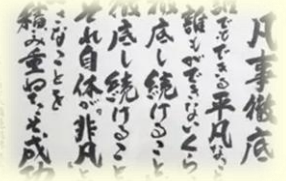 凡事徹底
誰でもできる平凡なこ
誰もができないくら
徹底し続けること
徹底し続けること
それ自体が。非凡と
さなことを
積み重ねて
成功